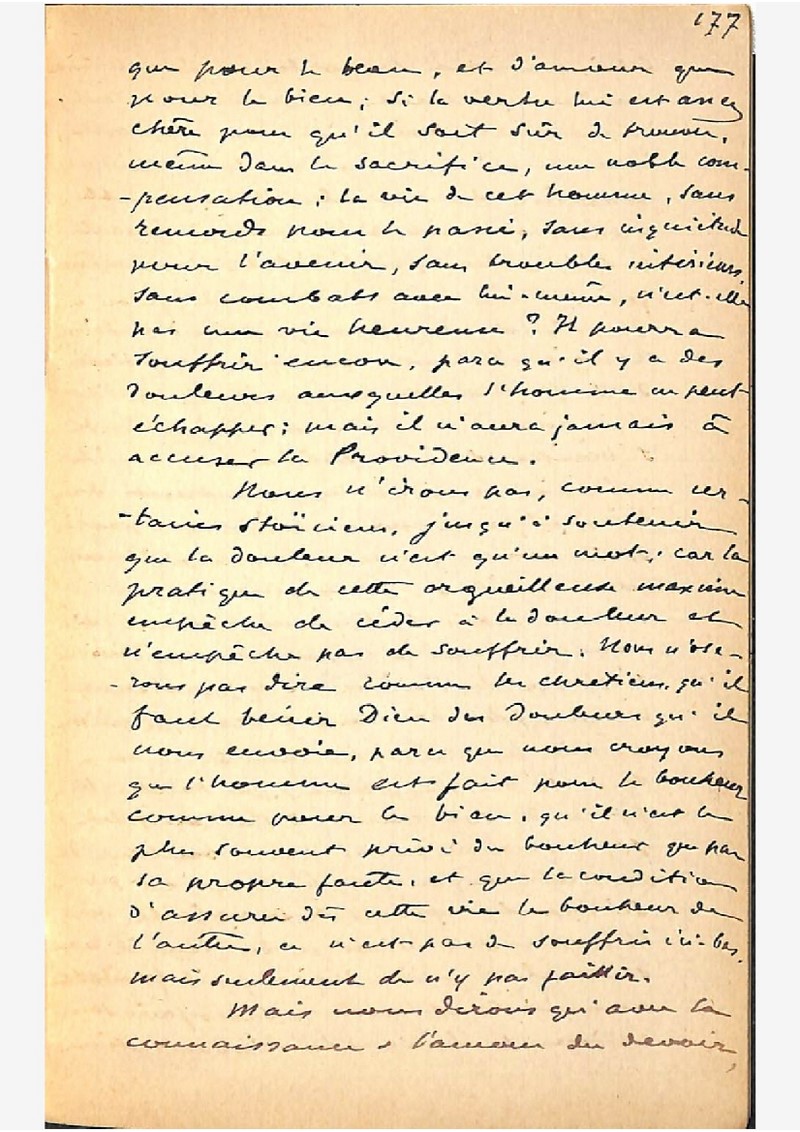 177
que pour le beau, et d'amour que
pour le bien ; si la vertu lui est assez
chère pour qu'il soit sûr de trouver,
même dans le sacrifice, une noble com-
-pensation ; la vie de cet homme, sans
remords pour le passé, sans inquiétude
pour l'avenir, sans troubles intérieurs,
sans combats avec lui-même, n'est-elle
pas une vie heureuse ? Il pourra
souffrir encore, parce qu'il y a des
douleurs auxquelles l'homme ne peut
échapper ; mais il n'aura jamais à
accuser la Providence.
Nous n'irons pas, comme cer-
-tains stoïciens, jusqu'à soutenir
que la douleur n'est qu'un mot ; car la
pratique de cette orgueilleuse maxime
empêche de céder à la douleur et
n'empêche pas de souffrir. Nous n'ose-
-rons pas dire comme les chrétiens, qu'il
faut bénir Dieu des douleurs qu'il
nous envoie, parce que nous croyons
que l'homme est fait pour le bonheur
comme pour le bien, qu'il n'est le
plus souvent privé du bonheur que par
sa propre faute, et que la condition
d'assurer dès cette vie le bonheur de
l'autre, ce n'est pas de souffrir ici-bas,
mais seulement de n'y pas faillir.
Mais nous dirons qu'avec la
connaissance & l'amour du devoir,